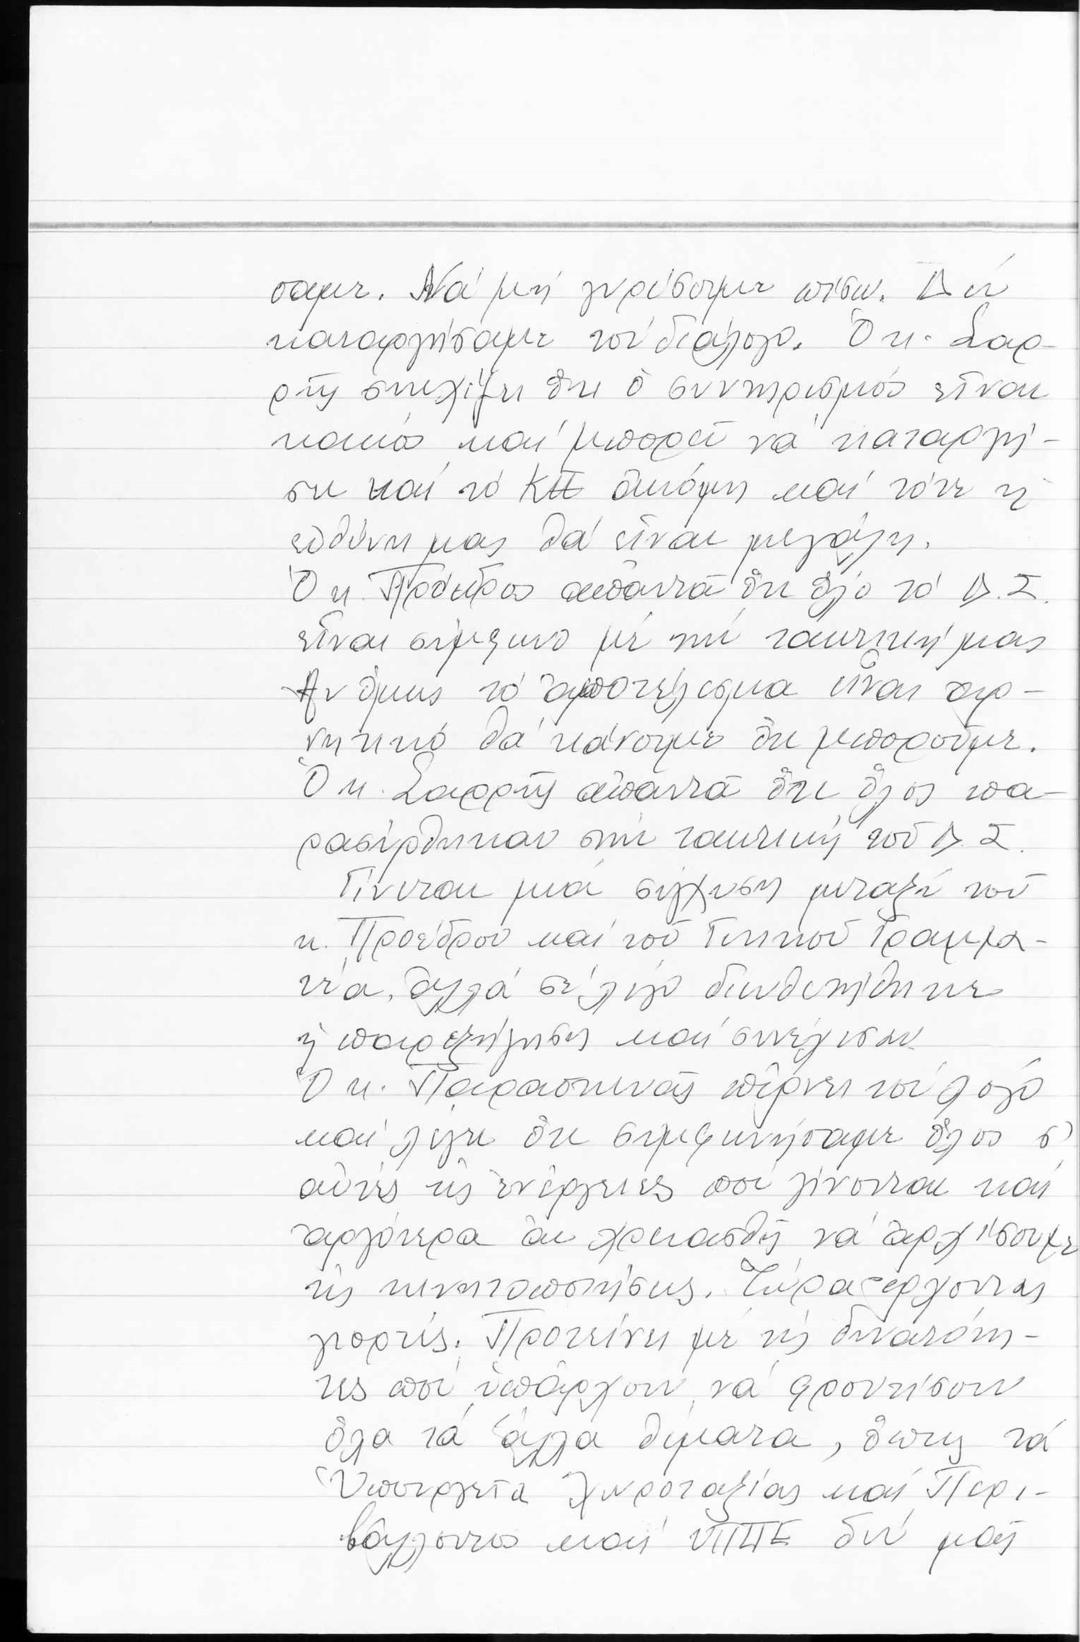 σαμε. Νά μή γυρίσουμε πίσω. Δέν
καταργήσαμε τόν διάλογο. Ὁ κ. Σαρ-
ρῆς συνεχίζει ὅτι ὁ συνεταιρισμός εἶναι
κακός καί μπορεῖ νά καταργή-
σει καί τό ΚΠ ἀκόμη καί τότε ἡ
εὐθύνη μας θά εἶναι μεγάλη.
Ὁ κ. Πρόεδρος ἀπαντᾶ ὅτι ὅλο τό Δ.Σ.
εἶναι σύμφωνο μέ τήν τακτική μας
Ἄν ὅμως τό ἀποτέλεσμα εἶναι ἀρ-
νητικό θά κάνουμε ὅτι μποροῦμε.
Ὁ κ. Σαρρῆς ἀπαντᾶ ὅτι ὅλοι πα-
ρασύρθηκαν στήν τακτική τοῦ Δ.Σ.
Γίνεται μιά σύγχυση μεταξύ τοῦ
κ. Προέδρου καί τοῦ Γενικοῦ Γραμμα-
τέα, ἀλλά σέ λίγο διευθετήθηκε
ἡ παρεξήγηση καί συνέχισαν
Ὁ κ. Παρασκευᾶς παίρνει τόν λόγο
καί λέγει ὅτι συμφωνήσαμε ὅλοι σ'
αὐτές τίς ἐνέργειες πού γίνονται καί
ἀργότερα ἄν χρειασθῆ νά ἀρχίσουμε
τίς κινητοποιήσεις. Τώρα ἔρχονται
γιορτές. Προτείνει μέ τίς δυνατότη-
τες πού ὑπάρχουν νά φροντίσουν
ὅλα τά ἄλλα θέματα, ὅπως τά
Ὑπουργεῖα Χωροταξίας καί Περι-
βάλλοντος καί ΥΠΠΕ δέν μᾶς